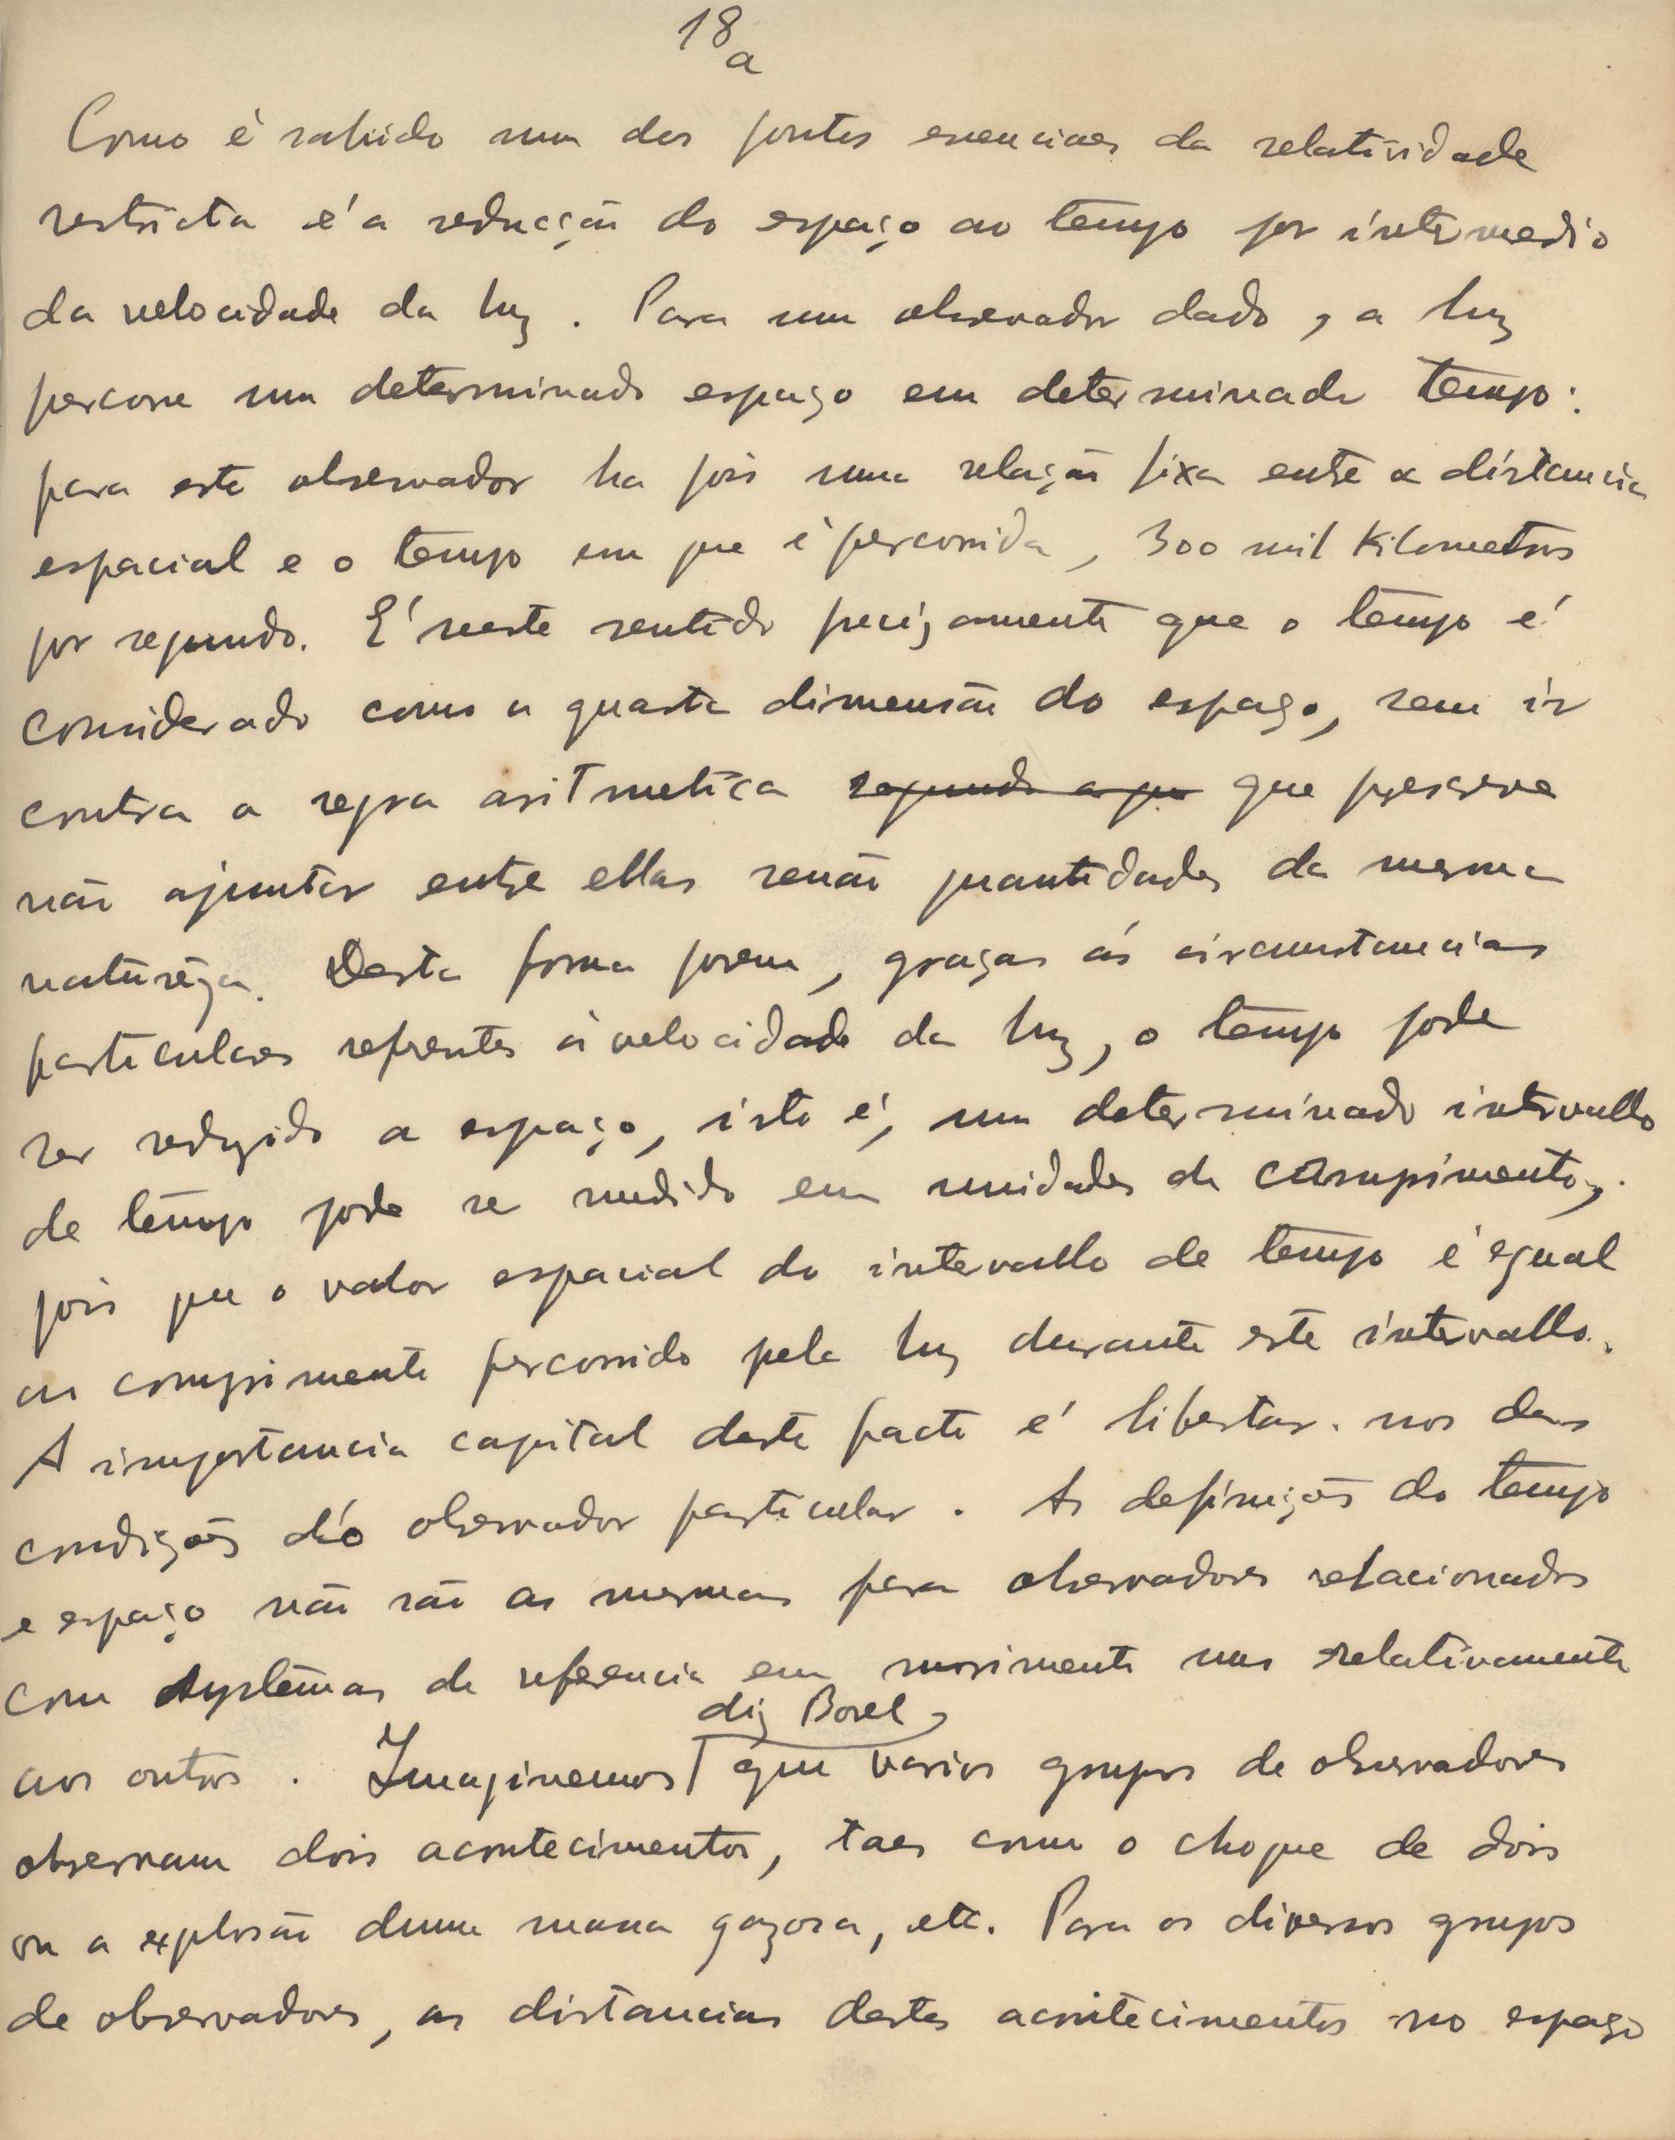 18a
Como é sabido um dos pontos esenciaes da relatividade
restricta é a reducção do espaço ao tempo por intermedio
da velocidade da luz. Para um observador dado, a luz
percorre um determinado espaço em determinado tempo:
para este observador ha pois uma relação fixa entre a distancia
espacial e o tempo em que é percorrida, 300 mil kilometros
por segundo. E' neste sentido precizamente que o tempo é
considerado como a quarta dimensão do espaço, sem ir
contra a regra aritmetica segundo a qu que prescreve
não ajuntar entre ellas senão quantidades da mesma
natureza. Desta forma porem, graças ás circumstancias
particulares refrentes á velocidade da luz, o tempo pode
ser reduzido a espaço, isto é, um determinado intervallo
de tempo pode se medido em unidades de comprimento,
pois que o valor espacial do intervallo de tempo é egual
ao comprimento percorrido pela luz durante este intervallo.
A importancia capital deste facto é libertar-nos das
condições do observador particular. As definições do tempo
e espaço não são as mesmas para observadores relacionados
com systemas de referencia em movimento uns relativamente
aos outros. Imaginemos diz Borel, que varios grupos de observadores
observam dois acontecimentos, taes como o choque de dois
ou a explosão duma massa gazosa, etc. Para os diversos grupos
de observadores, as distancias destes acontecimentos no espaço